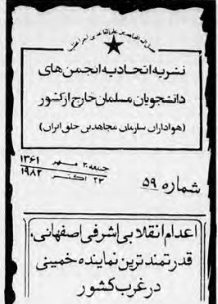 نشریه اتحادیه انجمن‌های
دانشجویان مسلمان خارج از کشور
(هواداران سازمان مجاهدین خلق ایران)
جمعه ۳۰ مهر ۱۳۶۱
۱۹۸۲
شماره ۵۹
اعدام انقلابی اشرفی اصفهانی،
قدرتمندترین نماینده خمینی
در غرب کشور